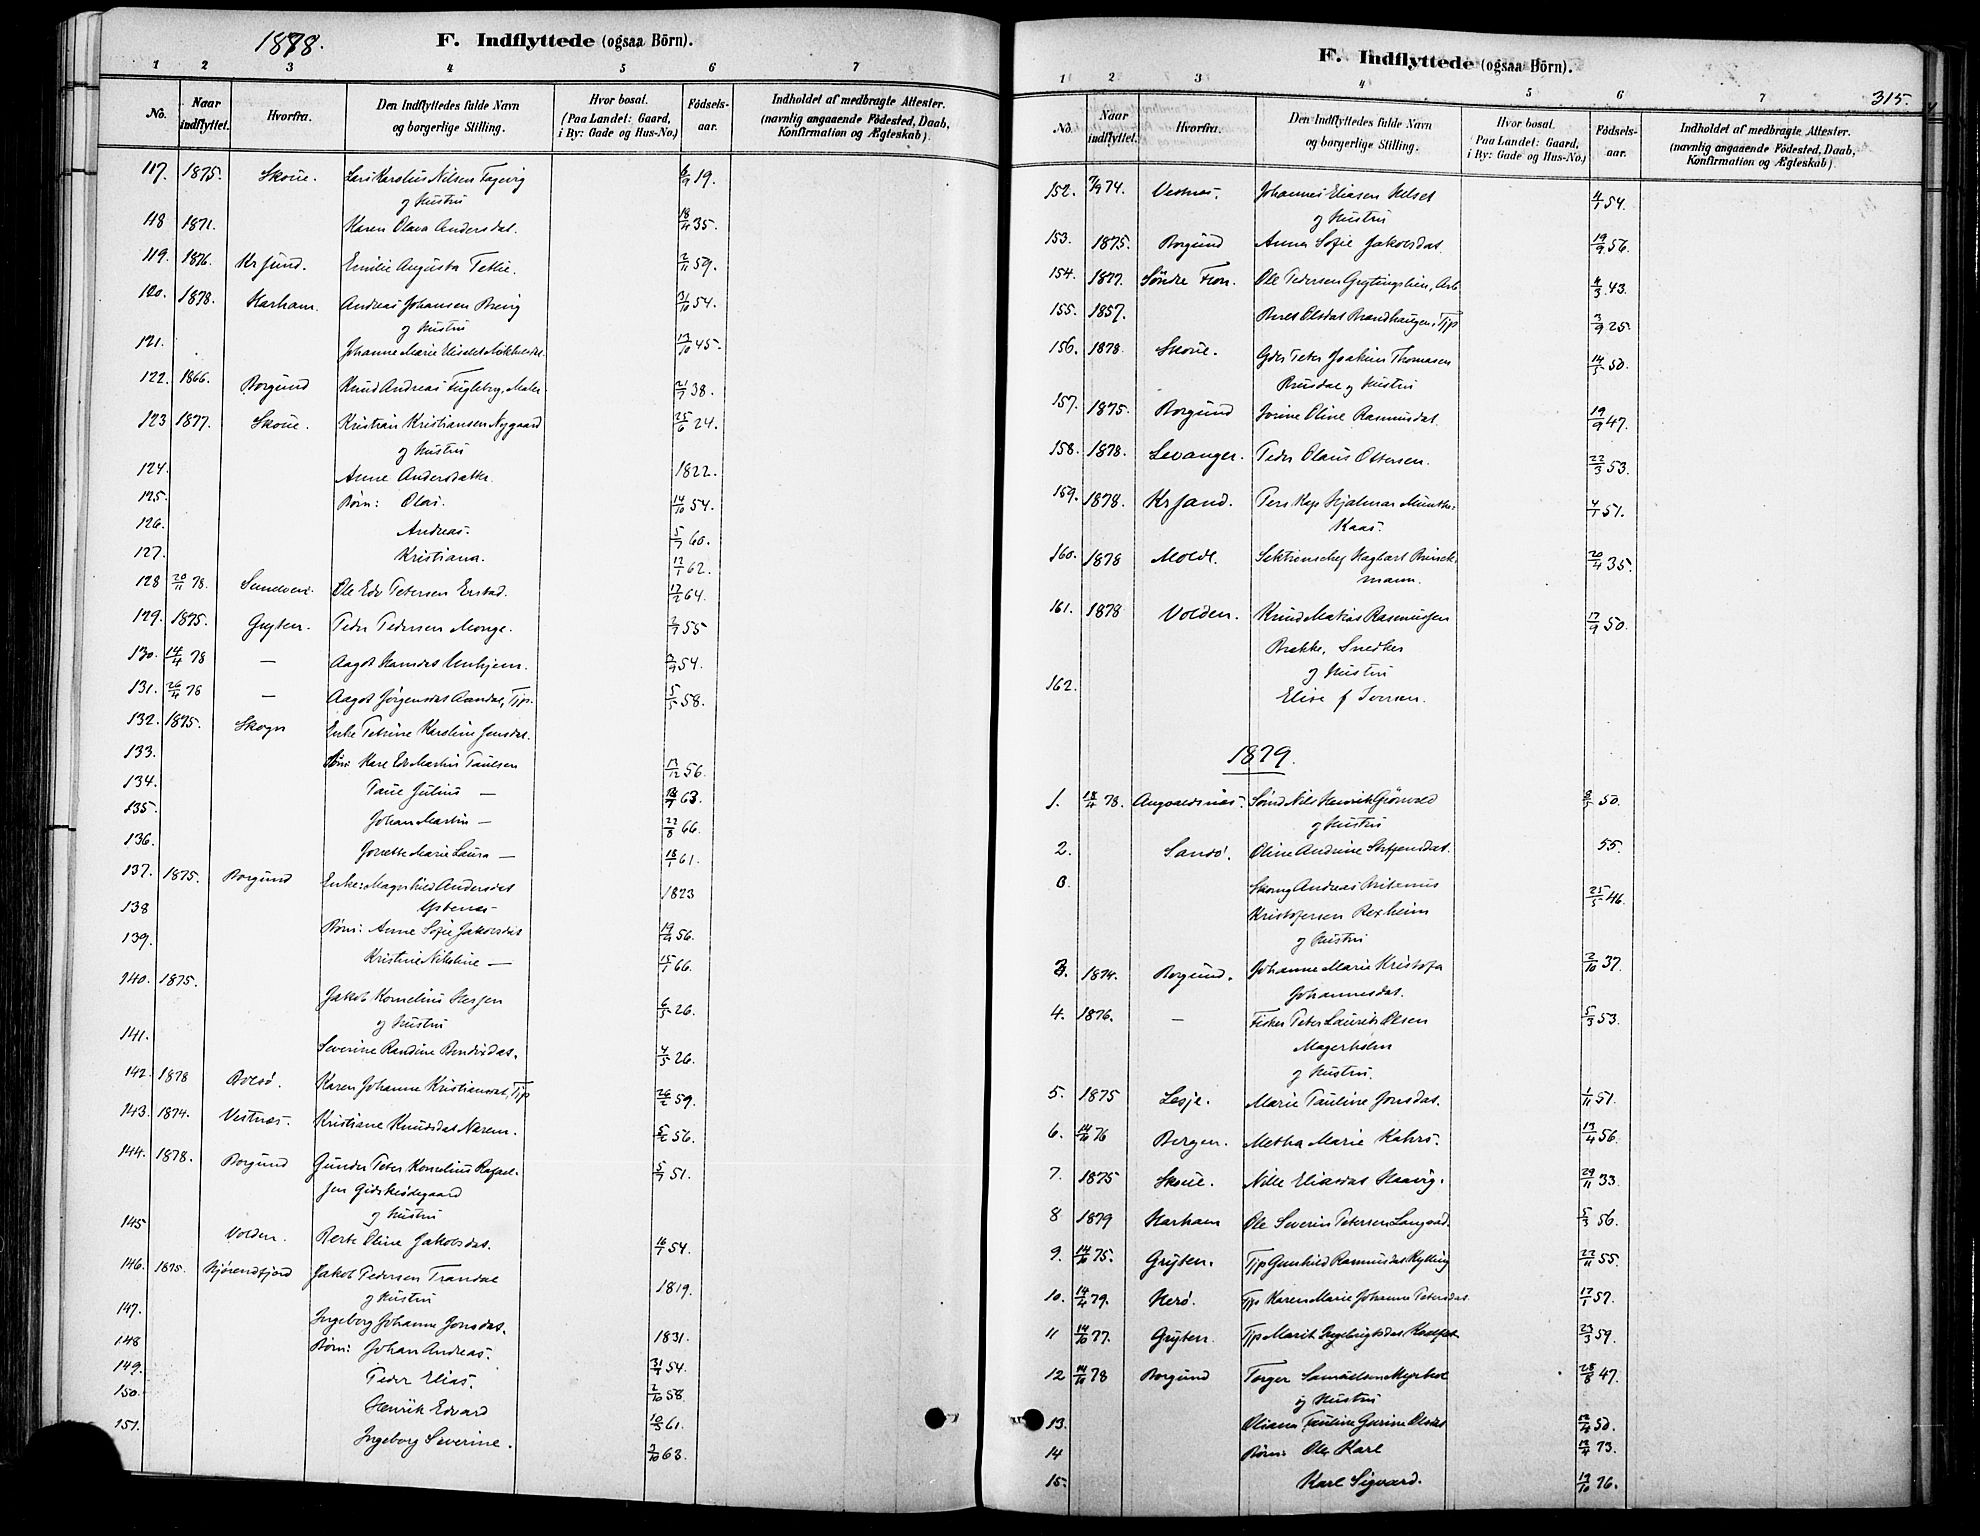 1878.
F. Indflyttede (ogsaa Börn).
1 2 3 4 5 6 7
No. Naar indflyttet. Hvorfra. Den Indflyttedes fulde Navn og borgerlige Stilling. Hvor bosat. (Paa Landet: Gaard, i By: Gade og Hus-No.) Fødsels-aar. Indholdet af medbragte Attester. (navnlig angaaende Födested, Daab, Konfirmation og Ægteskab).
117. 1875. Skoue. Lars Karolius Nilsen 6/9 19.
og Hustru
118 1871. Karen Olava Andersdat. 18/4 35.
119. 1876. Emilie Augusta Tetlie. 2/11 59.
120. 1878. Harham. Andreas Johansen 31/10 54.
og Hustru
121. Johanne Marie 13/10 45.
122. 1866. Borgund Knud Andreas Fugleberg, Maler 21/7 38.
123 1877. Skoue. Kristian Kristiansen Nygaard 25/6 24.
og Hustru
124. Anne Andersdatter. 1822.
125. Børn: Olai. 14/10 54.
126. Andreas. 5/7 60.
127. Kristiana. 12/1 62.
128 20/11 78. Ole Edv Petersen 17/2 64.
129. 1875. Gryten. Peder Pedersen Monge. 2/7 55
130. 14/4 78 — Aagot 54.
131. 26/4 78 — Aagot Jørgensdat Aandal, Tjp. 5/5 58.
132. 1875. Skogn Enke Petrine Karoline Jensdat.
133. Børn: Karl Edv Martin Paulsen 13/12 56.
134. Paul Julius — 63.
135. Johan Martin — 22/8 66.
136. Jonette Marie Laura — 18/1 61.
137. 1875. Borgund Enke: Magnhild Andersdat 1823
138
Børn: Anne Sofie Jakobsdat 19/9 56.
139. Kristine Nikoline — 15/1 66.
140. 1875. Jakob Kornelius 6/5 26.
og Hustru
141. Severine Randine 4/5 26.
142. 1878 Bolsø. Karen Johanne Kristiansdat, Tjp 26/2 59.
143. 1874. Vestnæs. Kristiane Knudsdat Nerem. 5/2 56.
144. 1878. Borgund Gunder Peter Kornelius Rafael- 5/7 51.
sen Gidskeødegaard
og Hustru
145 Volden. Berte Oline Jakobsdat. 16/1 54.
146. 1875. Hjørendfjord Jakob Pedersen Trandal 1819.
og Hustru
147. Ingeborg Johanne Jonsdat. 1831.
148 Børn: Johan Andreas. 54.
149. Peder Elias. 2/10 58.
150. Henrik Edvard 10/5 61.
151. Ingeborg Severine. 2/10 63.
F. Indflyttede (ogsaa Börn).
315.
1 2 3 4 5 6 7
No. Naar indflyttet. Hvorfra. Den Indflyttedes fulde Navn og borgerlige Stilling. Hvor bosat. (Paa Landet: Gaard, i By: Gade og Hus-No.) Fødsels-aar. Indholdet af medbragte Attester. (navnlig angaaende Födested, Daab, Konfirmation og Ægteskab).
152. 7/9 74. Vestnæs. Johannes Eliasen Helset 4/1 54.
og Hustru
153. 1875. Borgund Anna Sofie Jakobsdat. 19/9 56.
154. 1877. Söndre Fron. Ole Pedersen Grytingslien, Arb 4/3 43.
155. 1857. Beret Olsdat Brandhaugen, Tjp 3/9 25.
156. 1878. Skoue. Peter Joakim Thomasen 14/5 50.
Brusdal og Hustru
157. 1875. Borgund Jorine Oline Rasmusdat. 19/9 47.
158. 1878. Levanger. Peder Olaus Ottersen. 22/3 53.
159. 1878. Kr sand. Hjalmar Munthe- 4/1 51.
Kaas.
160. 1878 Molde. Sektionschef Hagbart Brinck- 20/4 35.
mann.
161. 1878 Volden. Knud Matias Rasmussen 17/9 50.
Brekke, Snedker
og Hustru
162. Elise f Iversen.
1879.
1. 18/4 78. Augvaldsnæs. Smed Nils Henrik Grönvold 8/1 50.
og Hustru
2. Sandö. Oline Andrine 55.
3. Skomg Andreas 25/5 46.
Kristofersen Rexheim
og Hustru
3. 1874. Borgund. Johanne Marie Kristofa 2/10 37.
Johannesdat.
4. 1876. — Fisker Peter Laurits Olsen 5/3 53.
Magerholm
og Hustru.
5. 1875 Lesje. Marie Pauline Jonsdat. 1/11 51.
6. 14/10 76 Bergen. Metha Marie Kahrs. 13/4 56.
7. 1875 Skoue. Nille Eliasdat Haavig. 29/11 33.
8 1879 Harham Ole Severin Petersen 5/3 56.
9. 14/10 75. Gryten. Tjp Gunhild Rasmusdat Kylling 22/11 55.
10. 14/4 79. Herö. Tjp Karen Marie Johanne Petersdat. 17/1 57.
11 14/10 77. Gryten. Tjp Marit Ingebrigtsdat 23/3 59.
12 14/11 78 Borgund Torger Samuelsen Myrhol 28/8 47.
og Hustru
13. Oliana Pauline Gurine Olsdat 12/4 50.
14 Børn: Ole Karl 13/4 73.
15. Karl Sigvard. 19/10 76.